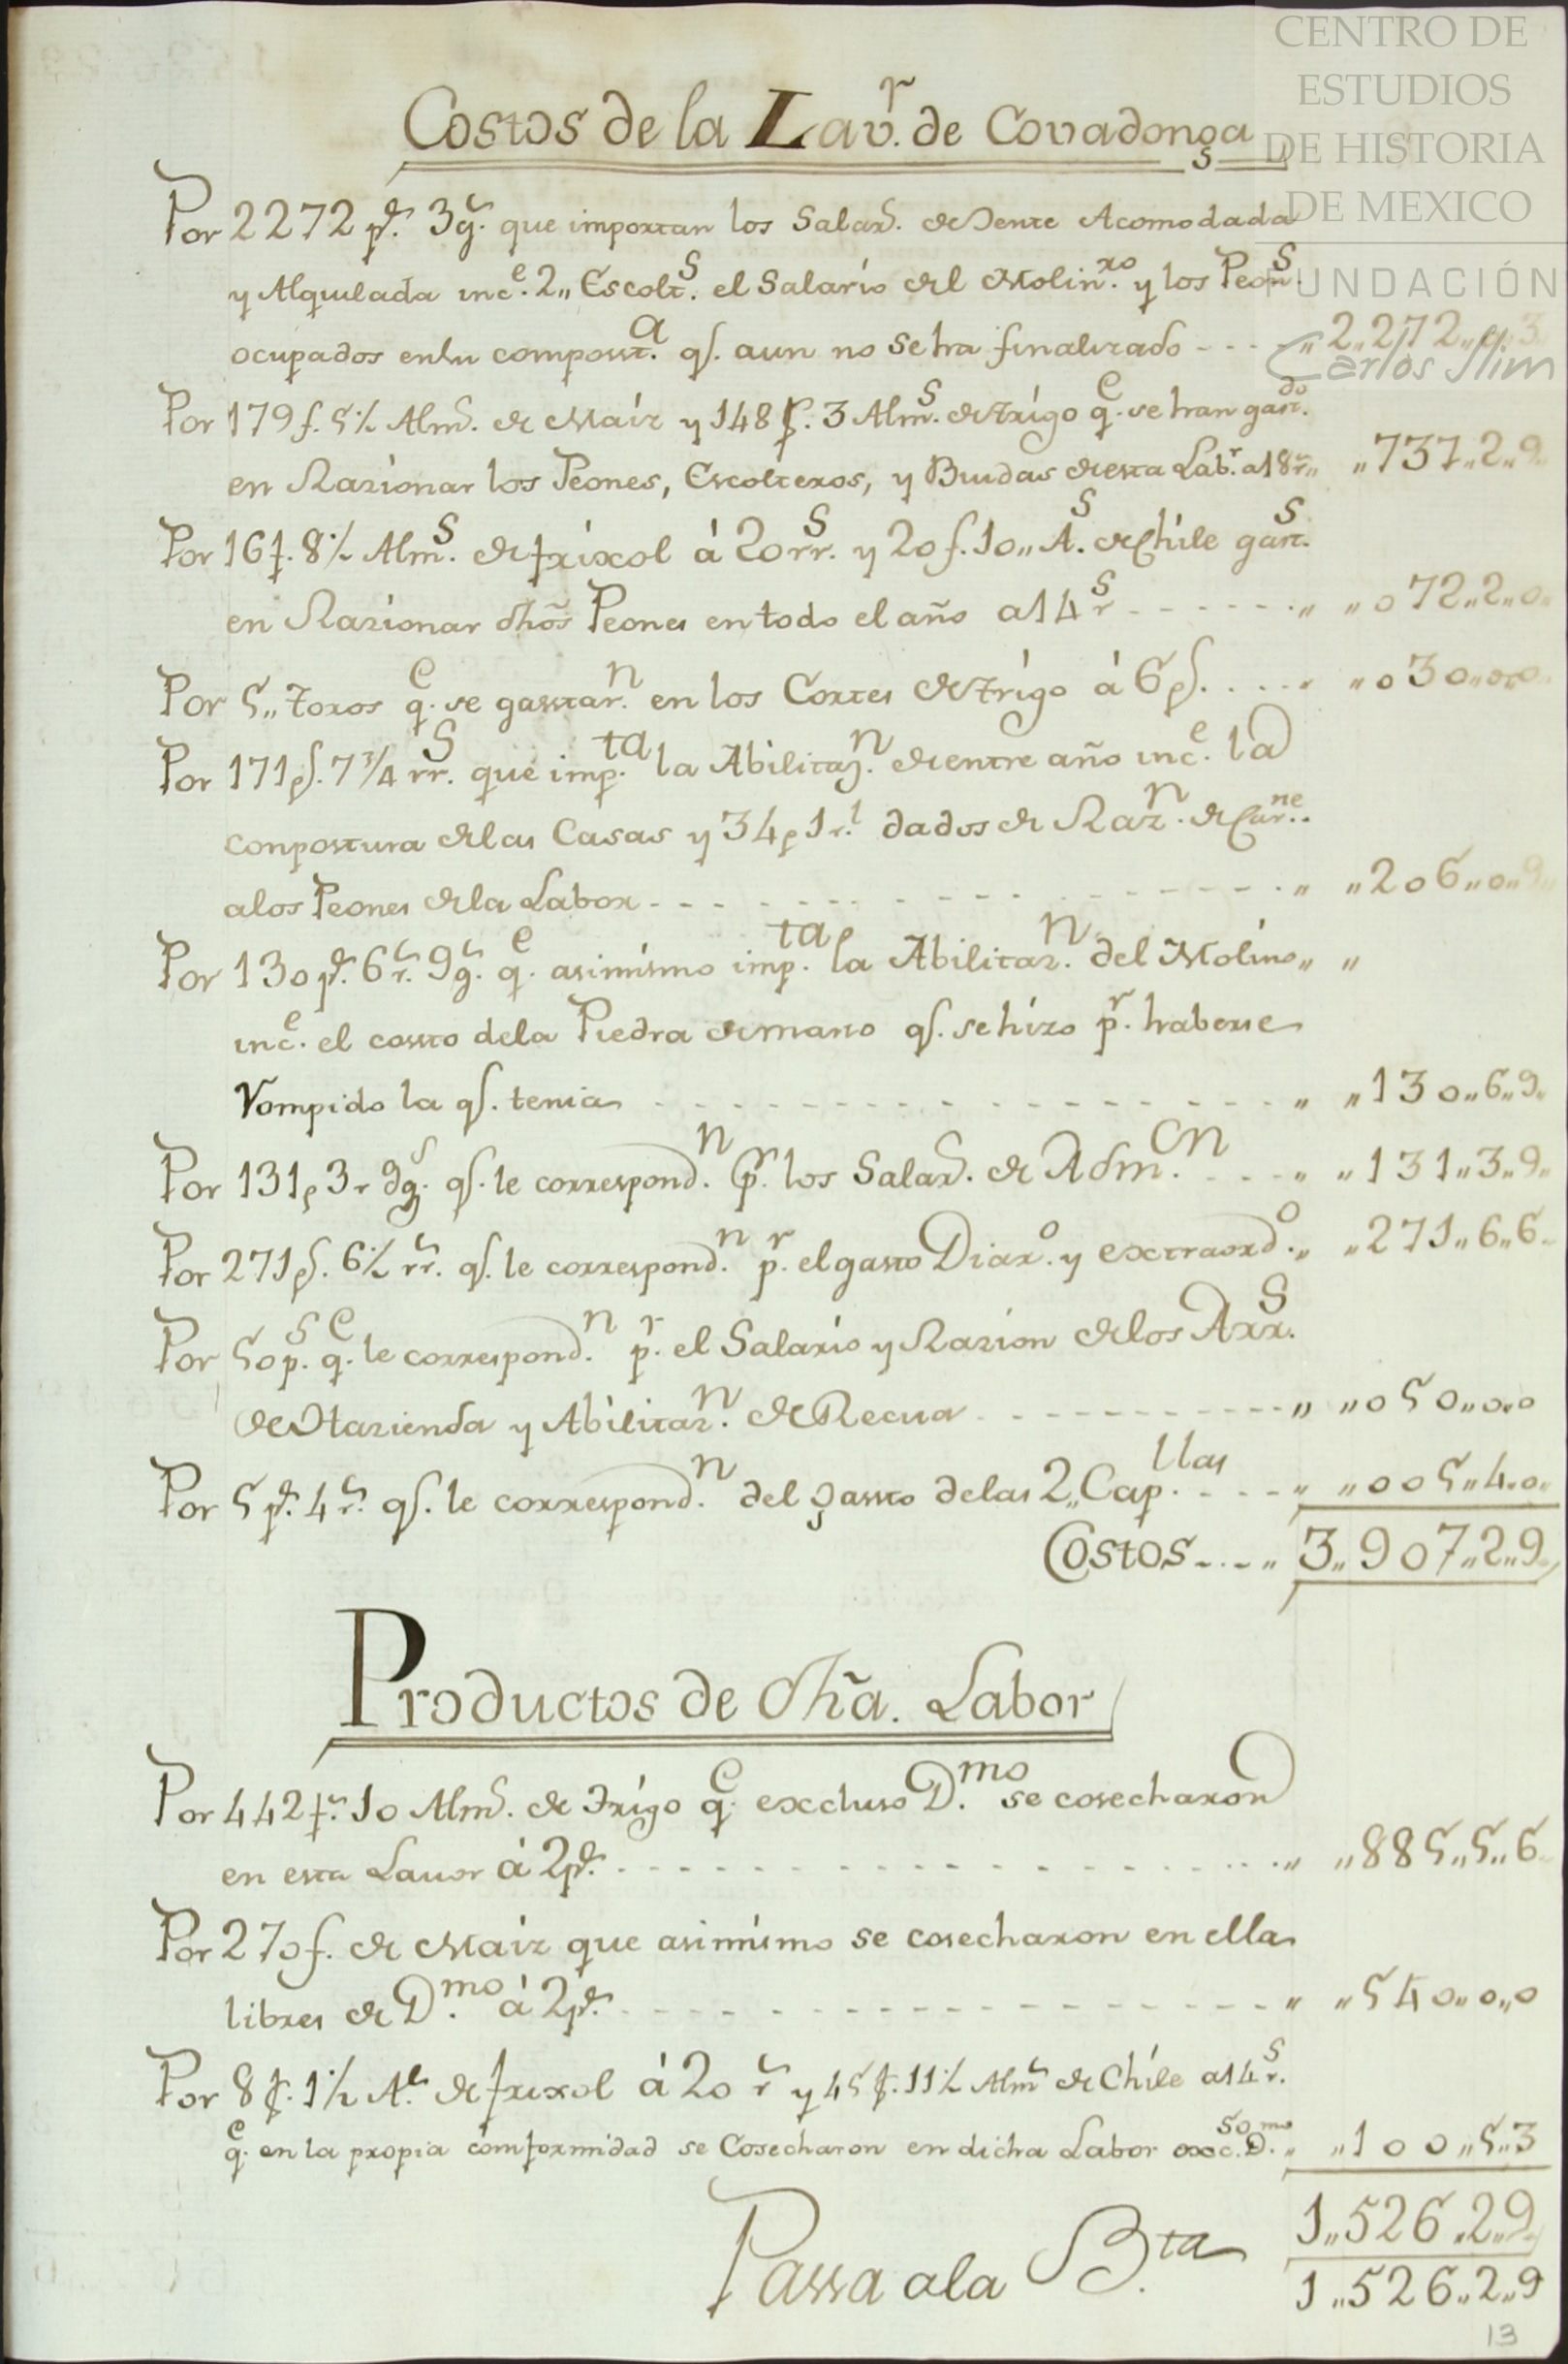 CENTRO DE
ESTUDIOS
DE HISTORIA
DE MEXICO
FUNDACIÓN
Carlos Slim
Costos de la Lav.r de Covadonga
Por 2272 p.s 3g.s que importan los Salar.s de Jente Acomodada
y Alquilada inc.e 2,, Escolt.s el Salario del Molin.ro y los Peon.s
ocupados en su compost.a q.e aun no se ha finalizado - - - ,, 2,,272,,0,,3
Por 179 f. 5½ Alm.s de Maiz y 148 f. 3 Alm.s de Trigo q.e se han gast.do
en Razionar los Peones, Escolteros, y Biudas de esta Lab.r a 18 r.s ,, ,,737,,2,,9
Por 16 f. 8½ Alm.s de frixol á 20 rr.s y 20 f. 10,, A.s de Chile gast.s
en Razionar dhõs Peones en todo el año a 14 r.s - - - - - - ,, ,,072,,2,,0
Por 5,, Toros q.e se gasstar.n en los Cortes de Trigo á 6 p.s - - - - ,,030,,0,,0
Por 171 p.s 7¾ rr.s que imp.ta la Abilitaz.n de entre año inc.e la
conpostura de las Casas y 34 p 1 r.l dados de Raz.n de Car.ne
a los Peones de la Labor - - - - - - - - - ,, ,,206,,0,,9
Por 130 p.s 6 r.s 9 g.s q.e asimismo imp.ta la Abilitaz.n del Molino ,, ,,
inc.e el cossto de la Piedra de mano q.e se hizo p.r haberse
rompido la q.e tenia - - - - - - - - - ,, ,,130,,6,,9
Por 131 p 3 r 9 g.s q.e le correspond.n p.r los Salar.s de Adm.on - - - ,, ,,131,,3,,9
Por 271 p.s 6½ rr.s q.e le correspond.n p.r el gasto Diar.o y extraord.o ,, ,,271,,6,,6
Por 50 p.s q.e le correspond.n p.r el Salario y Razion de los Arr.s
de Hazienda y Abilitaz.n de Recua - - - - - - - - - ,, ,,050,,0,,0
Por 5 p.s 4 r.s q.e le correspond.n del gassto de las 2,, Cap.llas - - - - ,, ,,005,,4,,0
Costos - - - ,, 3,,907,,2,,9
Productos de dhã. Labor
Por 442 f.s 10 Alm.s de Trigo q.e excluso D.mo se cosecharon
en esta Lauor á 2 p.s - - - - - - - - - ,, ,,885,,5,,6
Por 270 f. de Maiz que asimismo se cosecharon en ella
libres de D.mo á 2 p.s - - - - - - - - - ,, ,,540,,0,,0
Por 8 f. 1½ A.s de frixol á 20 r.s y 45 f. 11½ Alm.s de Chile a 14 r.s
q.e en la propia comformidad se Cosecharon en dicha Labor exc.so D.mo ,, ,,100,,5,,3
1,,526,,2,,9
Passa a la B.ta
1,,526,,2,,9
13